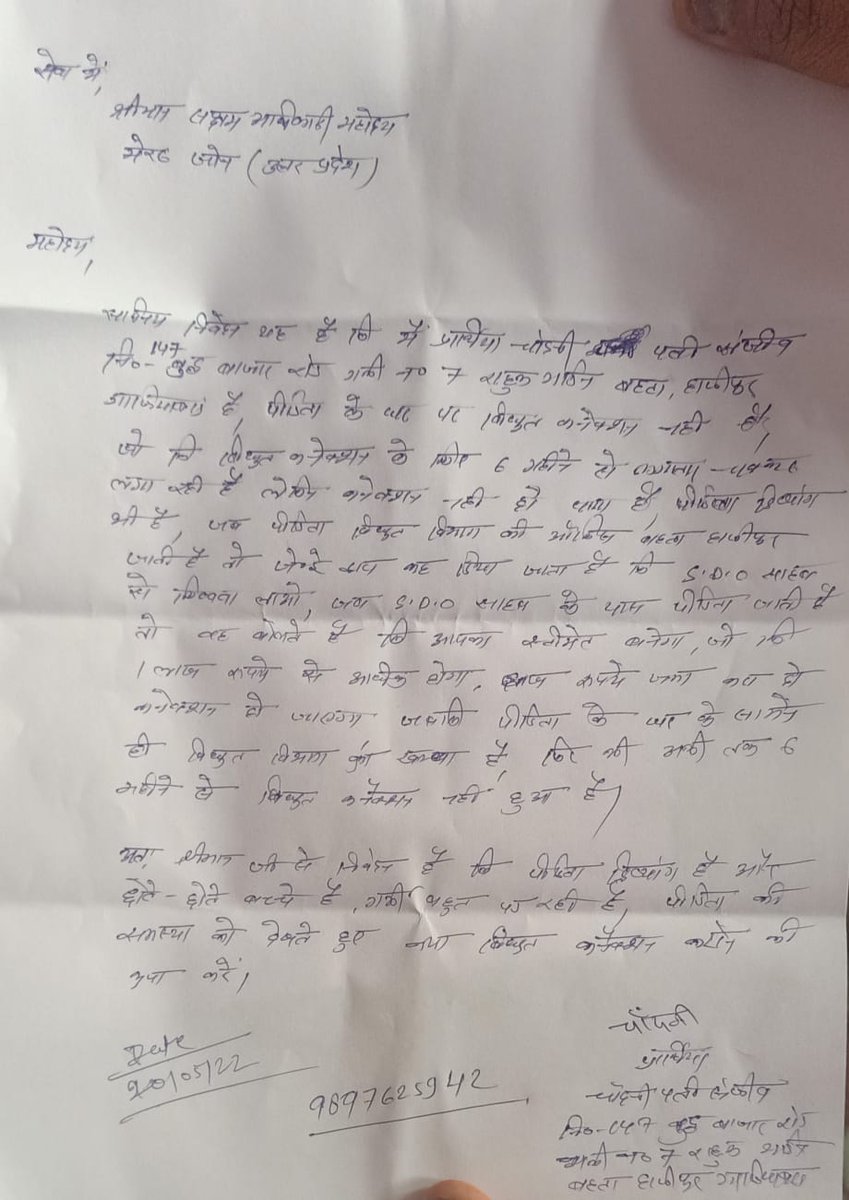 सेवा में,
श्रीमान सक्षम अधिकारी महोदय
मेरठ जोन (उत्तर प्रदेश)
महोदय,
सविनय निवेदन यह है कि मैं प्रार्थिया चाँदनी पत्नी संजीव
नि०-147 बुद्ध बाजार रोड गली न० 7 राहुल गार्डन बेहटा, हाजीपुर
गाजियाबाद है, पीडिता के घर पर विधुत कनेक्शन नही है,
जो कि विधुत कनेक्शन के लिए 6 महीने से लगातार चक्कर
लगा रही है लेकिन कनेक्शन नही हो पाया है, पीडिता दिव्यांग
भी है, जब पीडिता विधुत विभाग की ऑफिस बेहटा हाजीपुर
जाती है तो कह दिया जाता है कि S.D.O साहब
से लाओ, जब S.D.O साहब के पास पीडिता जाती है
तो वह बोलते है कि आपका स्टीमेट बनेगा, जो कि
1 लाख रूपये से अधिक होगा, रूपये जमा कर दो
कनेक्शन हो जाएगा जबकि पीडिता के घर के सामने
ही विधुत विभाग का खम्बा है, फिर भी अभी तक 6
महीने से विधुत कनेक्शन नहीं हुआ है।
अतः श्रीमान जी से निवेदन है कि पीडिता दिव्यांग है और
छोटे-छोटे बच्चे है, गर्मी बहुत पड रही है, पीडिता की
समस्या को देखते हुए नया विधुत कनेक्शन कराने की
कृपा करें।
चाँदनी
प्रार्थिया
Date
20/05/22
9897625942
चाँदनी पत्नी संजीव
नि०-147 बुद्ध बाजार रोड
गली न० 7 राहुल गार्डन
बेहटा हाजीपुर गाजियाबाद